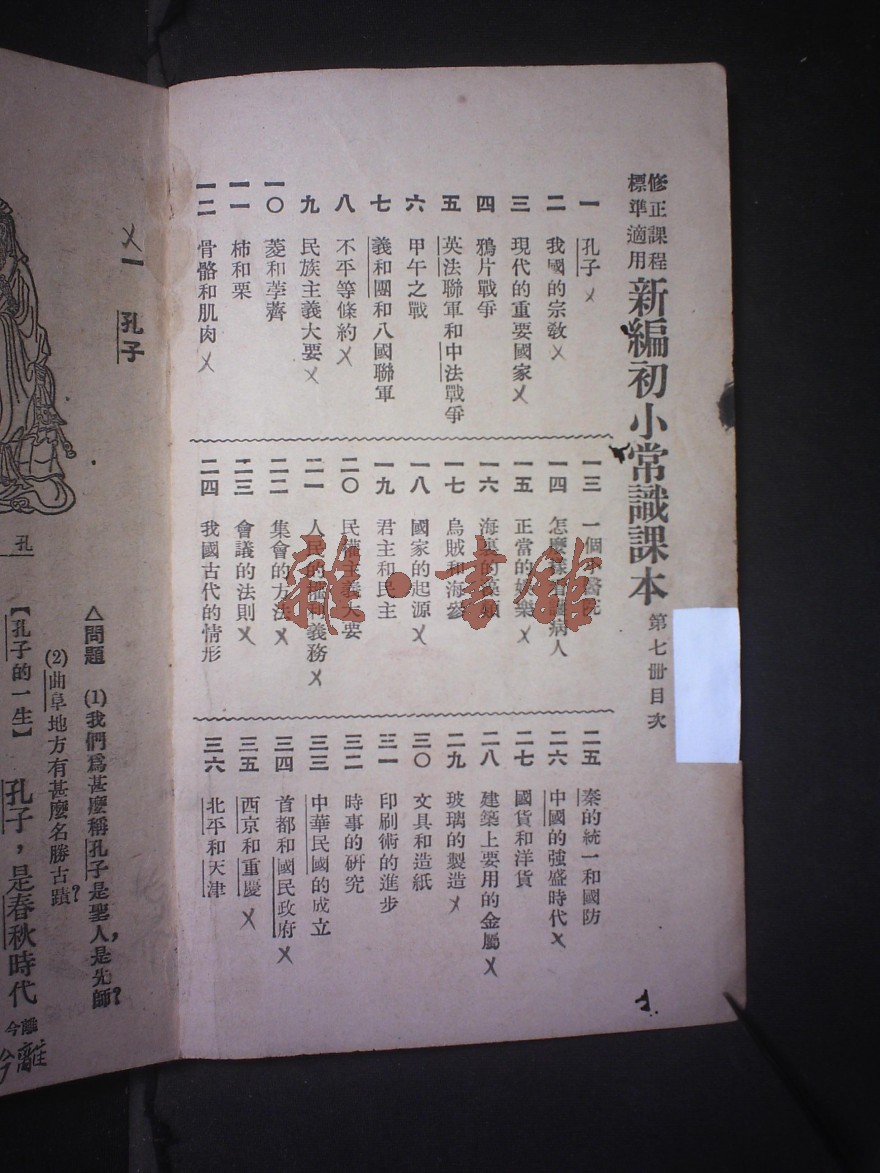 修正課程
標準適用
新編初小常識課本 第七冊目次
一 孔子
二 我國的宗教
三 現代的重要國家
四 鴉片戰爭
五 英法聯軍和中法戰爭
六 甲午之戰
七 義和團和八國聯軍
八 不平等條約
九 民族主義大要
一〇 菱和荸薺
一一 柿和栗
一二 骨骼和肌肉
一三 一個小醫院
一四 怎麼樣看護病人
一五 正當的娛樂
一六 海裏的藻類
一七 烏賊和海參
一八 國家的起源
一九 君主和民主
二〇 民權主義大要
二一 人民的權利義務
二二 集會的方法
二三 會議的法則
二四 我國古代的情形
二五 秦的統一和國防
二六 中國的強盛時代
二七 國貨和洋貨
二八 建築上要用的金屬
二九 玻璃的製造
三〇 文具和造紙
三一 印刷術的進步
三二 時事的研究
三三 中華民國的成立
三四 首都和國民政府
三五 西京和重慶
三六 北平和天津
雜·書館
一 孔子
△問題 (1)我們爲甚麼稱孔子是聖人,是先師?
(2)曲阜地方有甚麼名勝古蹟?
孔
【孔子的一生】 孔子,是春秋時代
離今
離今